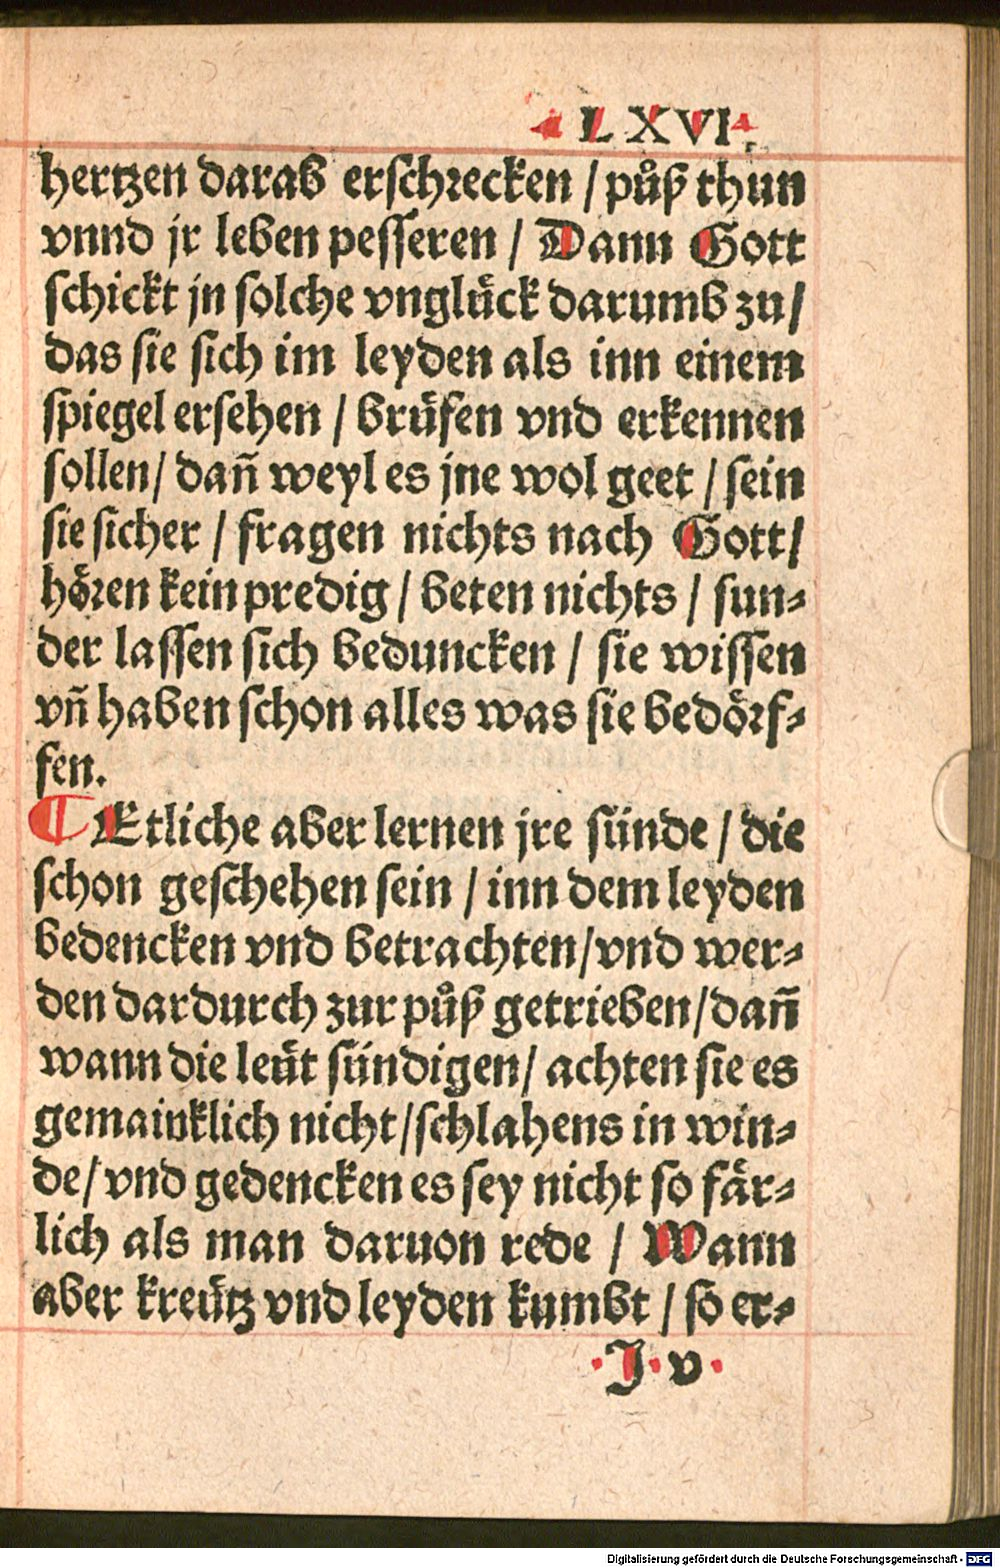 LXVI.
hertzen darab erschrecken / půß thun
vnnd jr leben pesseren / Dann Gott
schickt jn solche vnglück darumb zu /
das sie sich im leyden als inn einem
spiegel ersehen / brüfen vnd erkennen
sollen / dañ weyl es jne wol geet / sein
sie sicher / fragen nichts nach Gott /
hören kein predig / beten nichts / sun-
der lassen sich beduncken / sie wissen
vñ haben schon alles was sie bedörf-
fen.
Etliche aber lernen jre sünde / die
schon geschehen sein / inn dem leyden
bedencken vnd betrachten / vnd wer-
den dardurch zur půß getrieben / dañ
wann die leüt sündigen / achten sie es
gemainklich nicht / schlahens in win-
de / vnd gedencken es sey nicht so fär-
lich als man daruon rede / Wann
aber kreütz vnd leyden kumbt / so er-
J v
Digitalisierung gefördert durch die Deutsche Forschungsgemeinschaft - DFG